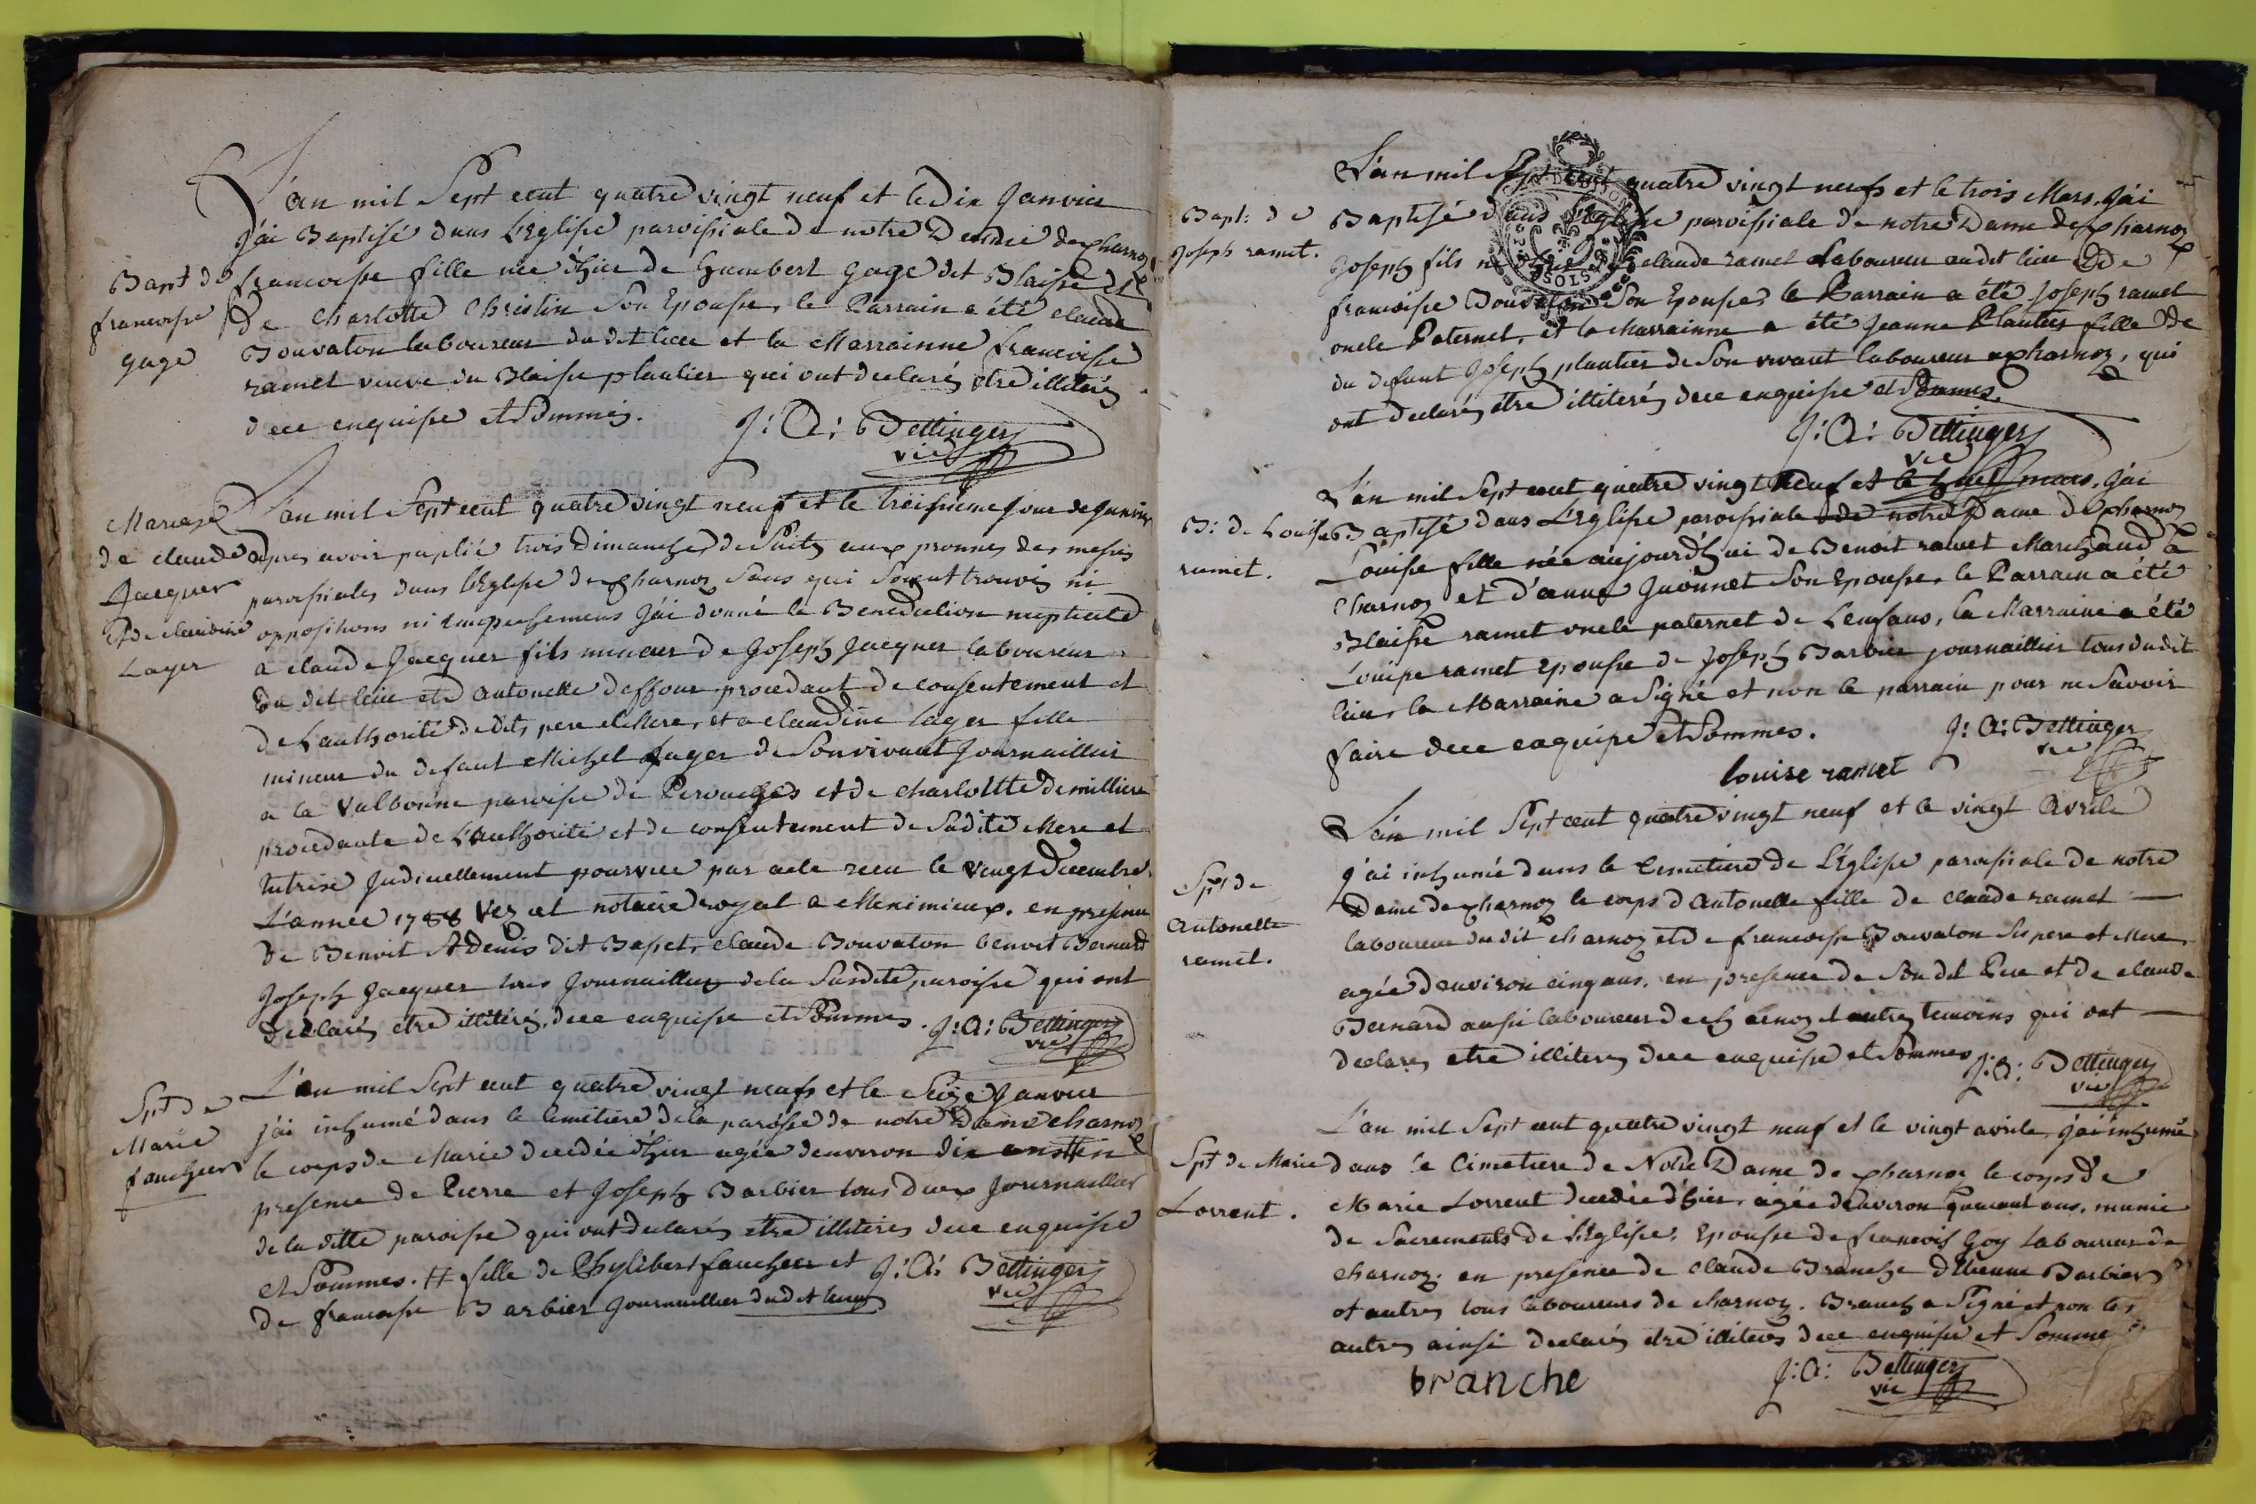 L'an mil Sept cent quatre vingt neuf et le dix Janvier
J'ai Baptisé dans L'Eglise paroissiale de notre Demne de Charnoz
Bapt de
francoise
gage
francoise fille née d'hier de humbert gage dit Blaise et
de Charlotte Christin Son Epouse, le Parrain a été claude
Bouvaton laboureur du dit lieu et la Marrainne francoise
ramet veuve du Blaise plantier qui ont declarés etre illiterés
dece enquise et Sommés.
J: A: Bettinger
vic
Mariage
de claude
Jacquer
Et de claudine
Layer
L'an mil Sept cent quatre vingt neuf et le treisieme jour de Janvier
apres avoir puplié trois dimanches de Suite aux pronnes des messes
paroissiales dans l'Eglise de Charnoz Sans qui Soyent trouvés ni
oppositions ni empechemens J'ai donné la Benediction nuptiale
a claude Jacquer fils mineur de Joseph Jacquer laboureur
du dit lieu et d'antonette deffour procedant de consentement et
de L'authorité de dits pere et Mere, et a claudine layer fille
mineur du defunt Michel Layer de Son vivant Journaillier
a la Valbonne paroisse de Perouges et de charlotte demilliere
procedante de L'authorité et de consentement de Sadite Mere et
tutrise Judiciellement pourvue par acte recu le vingt Decembre
L'année 1788 Vez et notaire royal a Meximieux. en presence
de Benoit St denis dit Bapet, claude Bouvaton benoit Bernard
Joseph Jacquer tous Journaillier de la Susdite paroisse qui ont
declarés etre illiterés, dece enquise et Sommes. J: A: Bettinger
vic
Spt de
Marie
faucheur
L'an mil Sept cent quatre vingt neuf et le Seize Janvier
j'ai inhumé dans le Cimetiere de la paroisse de notre Dame Charnoz
le corps de Marie decedée d'hier agée denviron dix ans # en
presence de Pierre et Joseph Barbier tous deux Journaillier
de la ditte paroisse qui ont declarés etre illiteres dece enquise
et Sommes. # fille de Phylibert faucheur et
de francoise Barbier Journaillier dudit lieu
J: A: Bettinger
vic
L'an mil Sept cent quatre vingt neuf et le trois Mars J'ai
Bapt: de
Joseph ramet.
Baptisé dans L'Eglise paroissiale de notre Dame de Charnoz
Joseph fils né claude ramet Laboureur au dit lieu et de
francoise Bouvaton Son Epouse le Parrain a été Joseph ramet
oncle Paternel, et la Marrainne a été Jeanne Plantier fille de
du defunt Joseph plantier de Son vivant laboureur a Charnoz, qui
ont declarés etre illiterés dece enquise et Sommes.
J: A: Bettinger
vic
L'an mil Sept cent quatre vingt Neuf et le huit mars, J'ai
B: de Louise
ramet.
Baptisé dans L'Eglise paroissiale de notre Dame de Charnoz
Louise fille née aujourd'hui de Benoit ramet Marchand a
Charnoz et d'anne Juonnet Son Epouse, le Parrain a été
Blaise ramet oncle paternel de Lenfans, la Marraine a été
Louise ramet Epouse de Joseph Barbier journaillier tous dudit
lieu, la Marraine a Signé et non le parrain pour ne Savoir
faire dece enquise et Sommes.
J: A: Bettinger
vic
louise ramet
L'an mil Sept cent quatre vingt neuf et le vingt Avrile
Spt de
Antonette
ramet.
j'ai inhumé dans le Cimetiere de L'Eglise paroissiale de notre
Dame de Charnoz le corps d'Antonette fille de claude ramet
laboureur dudit charnoz et de francoise Bouvaton Ses pere et Mere
agée denviron cinq ans. en presence de Son dit Pere et de claude
Bernard aussi laboureur de charnoz et autres temoins qui ont
declarés etre illiteres dece enquise et Sommes J: A: Bettinger
vic
L'an mil Sept cent quatre vingt neuf et le vingt avrile j'ai inhumé
Spt de Marie
Lorrent.
dans le Cimetiere de Notre Dame de Charnoz le corps de
Marie Lorrent decedée d'hier, agée denviron quarant ans, munie
de Sacrements de l'Eglise, Epouse de francois Goy Laboureur de
charnoz. en presence de claude Branche d'Etienne Barbier
et autres tous laboureurs de charnoz. Branch a Signé et non les
autres ainsi declarés etre illiteres dece enquise et Somme
branche
J: A: Bettinger
vic